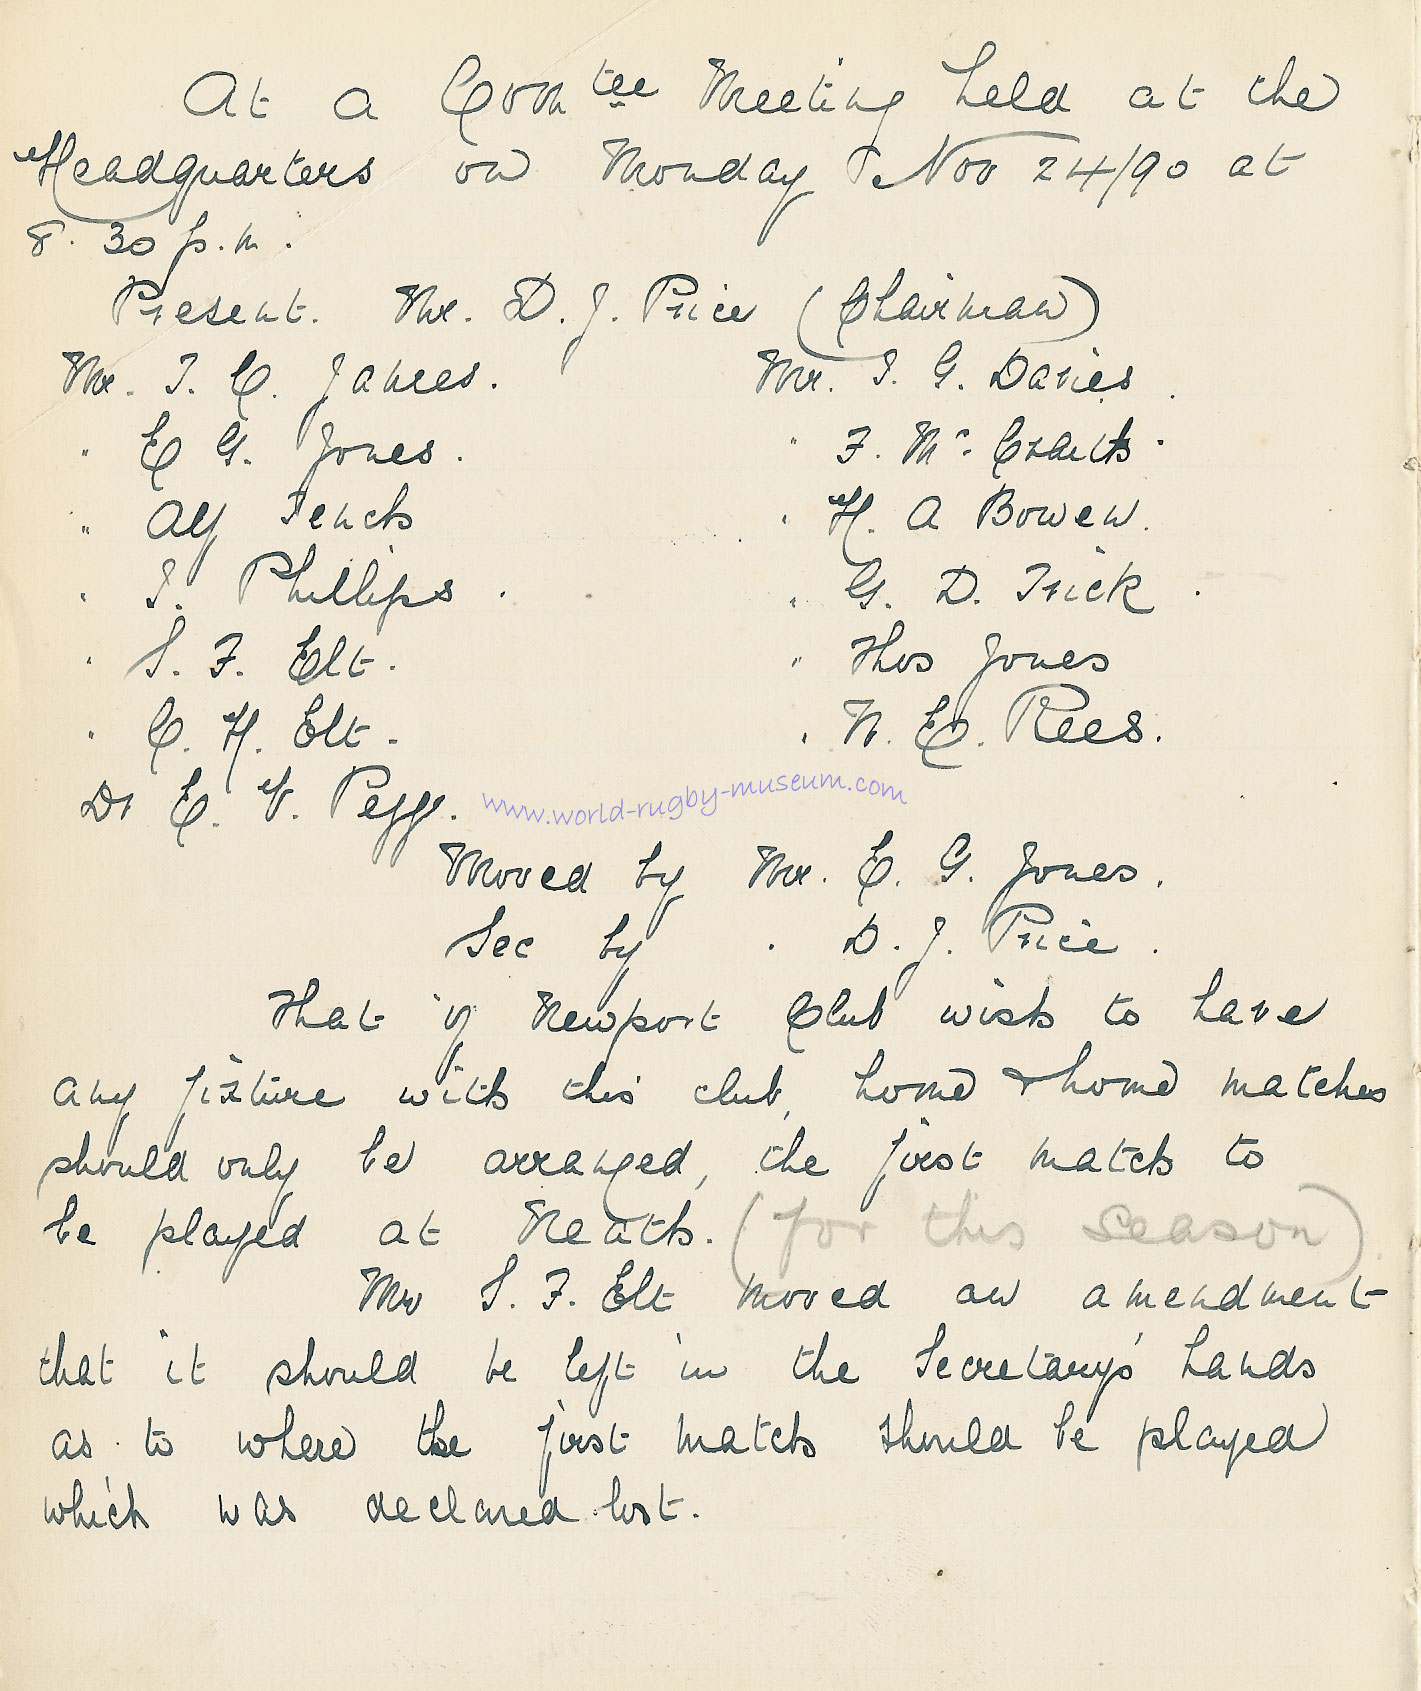 At a Comtee Meeting held at the
Headquarters on Monday Nov 24/90 at
8.30 p.m.
Present. Mr. D. J. Price (Chairman)
Mr. T. C. James. Mr. T. G. Davies.
" E G. Jones. " F. Mc
" Alf Tench " H. A Bowen.
" T. Phillips. " G. D. Trick.
" S. F. Elt. " Thos Jones
" C. H. Elt. " W. E. Rees.
Dr E. V. Pegge.
www.world-rugby-museum.com
Moved by Mr. E. G. Jones.
Sec by " D. J. Price.
That if Newport Club wish to have
any fixture with this club, home & home matches
should only be arranged, the first match to
be played at Neath. (for this season)
Mr S. F. Elt moved an amendment
that it should be left in the Secretary's hands
as to where the first match should be played
which was declared lost.